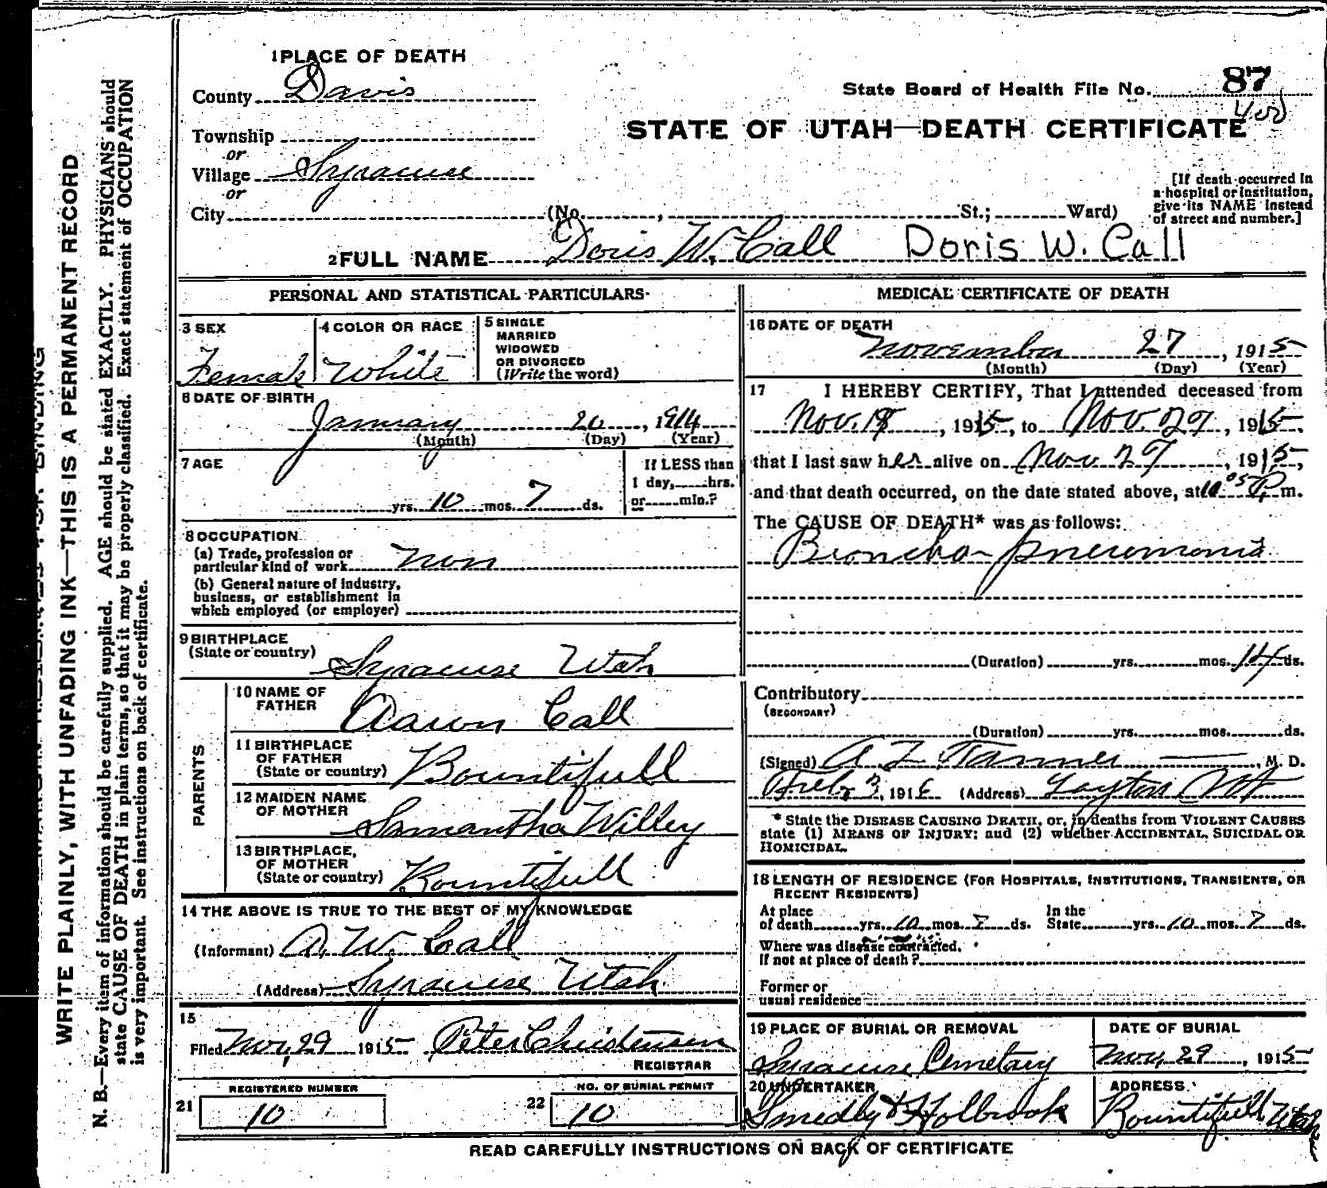 1 PLACE OF DEATH
County Davis
Township
or
Village Syracuse
or
City (No. , St.; Ward)
State Board of Health File No. 87
400
STATE OF UTAH—DEATH CERTIFICATE
[If death occurred in
a hospital or institution,
give its NAME instead
of street and number.]
2 FULL NAME Doris W. Call Doris W. Call
PERSONAL AND STATISTICAL PARTICULARS
3 SEX
Female
4 COLOR OR RACE
White
5 SINGLE
MARRIED
WIDOWED
OR DIVORCED
(Write the word)
6 DATE OF BIRTH
January 20, 1914
(Month) (Day) (Year)
7 AGE
yrs. 10 mos. 7 ds.
If LESS than
1 day, hrs.
or min.?
8 OCCUPATION
(a) Trade, profession or
particular kind of work Non
(b) General nature of industry,
business, or establishment in
which employed (or employer)
9 BIRTHPLACE
(State or country)
Syracuse Utah
PARENTS
10 NAME OF
FATHER
Aaron Call
11 BIRTHPLACE
OF FATHER
(State or country) Bountifull
12 MAIDEN NAME
OF MOTHER
Samantha Willey
13 BIRTHPLACE,
OF MOTHER
(State or country) Bountifull
14 THE ABOVE IS TRUE TO THE BEST OF MY KNOWLEDGE
(Informant) A. W. Call
(Address) Syracuse Utah
15
Filed Nov, 29 1915 Peter Christensen
REGISTRAR
REGISTERED NUMBER
21 10
NO. OF BURIAL PERMIT
22 10
MEDICAL CERTIFICATE OF DEATH
16 DATE OF DEATH
November 27, 1915
(Month) (Day) (Year)
17 I HEREBY CERTIFY, That I attended deceased from
Nov. 18, 1915, to Nov. 27, 1915,
that I last saw her alive on Nov 27, 1915,
and that death occurred, on the date stated above, at 10 05 P. m.
The CAUSE OF DEATH* was as follows:
Broncho-pneumonia
(Duration) yrs. mos. 14 ds.
Contributory
(SECONDARY)
(Duration) yrs. mos. ds.
(Signed) A Z Tanner, M. D.
Feb 3, 1916 (Address) Layton Ut
* State the DISEASE CAUSING DEATH, or, in deaths from VIOLENT CAUSES
state (1) MEANS OF INJURY; and (2) whether ACCIDENTAL, SUICIDAL OR
HOMICIDAL.
18 LENGTH OF RESIDENCE (FOR HOSPITALS, INSTITUTIONS, TRANSIENTS, OR
RECENT RESIDENTS)
At place
of death yrs. 10 mos. 7 ds.
In the
State yrs. 10 mos. 7 ds.
Where was disease contracted,
If not at place of death?
Former or
usual residence
19 PLACE OF BURIAL OR REMOVAL
Syracuse Cemetary
DATE OF BURIAL
Nov, 29, 1915
20 UNDERTAKER
Smedley & Holbrook
ADDRESS
Bountifull Utah
READ CAREFULLY INSTRUCTIONS ON BACK OF CERTIFICATE
WRITE PLAINLY, WITH UNFADING INK—THIS IS A PERMANENT RECORD
N. B.—Every item of information should be carefully supplied. AGE should be stated EXACTLY. PHYSICIANS should
state CAUSE OF DEATH in plain terms, so that it may be properly classified. Exact statement of OCCUPATION
is very important. See instructions on back of certificate.